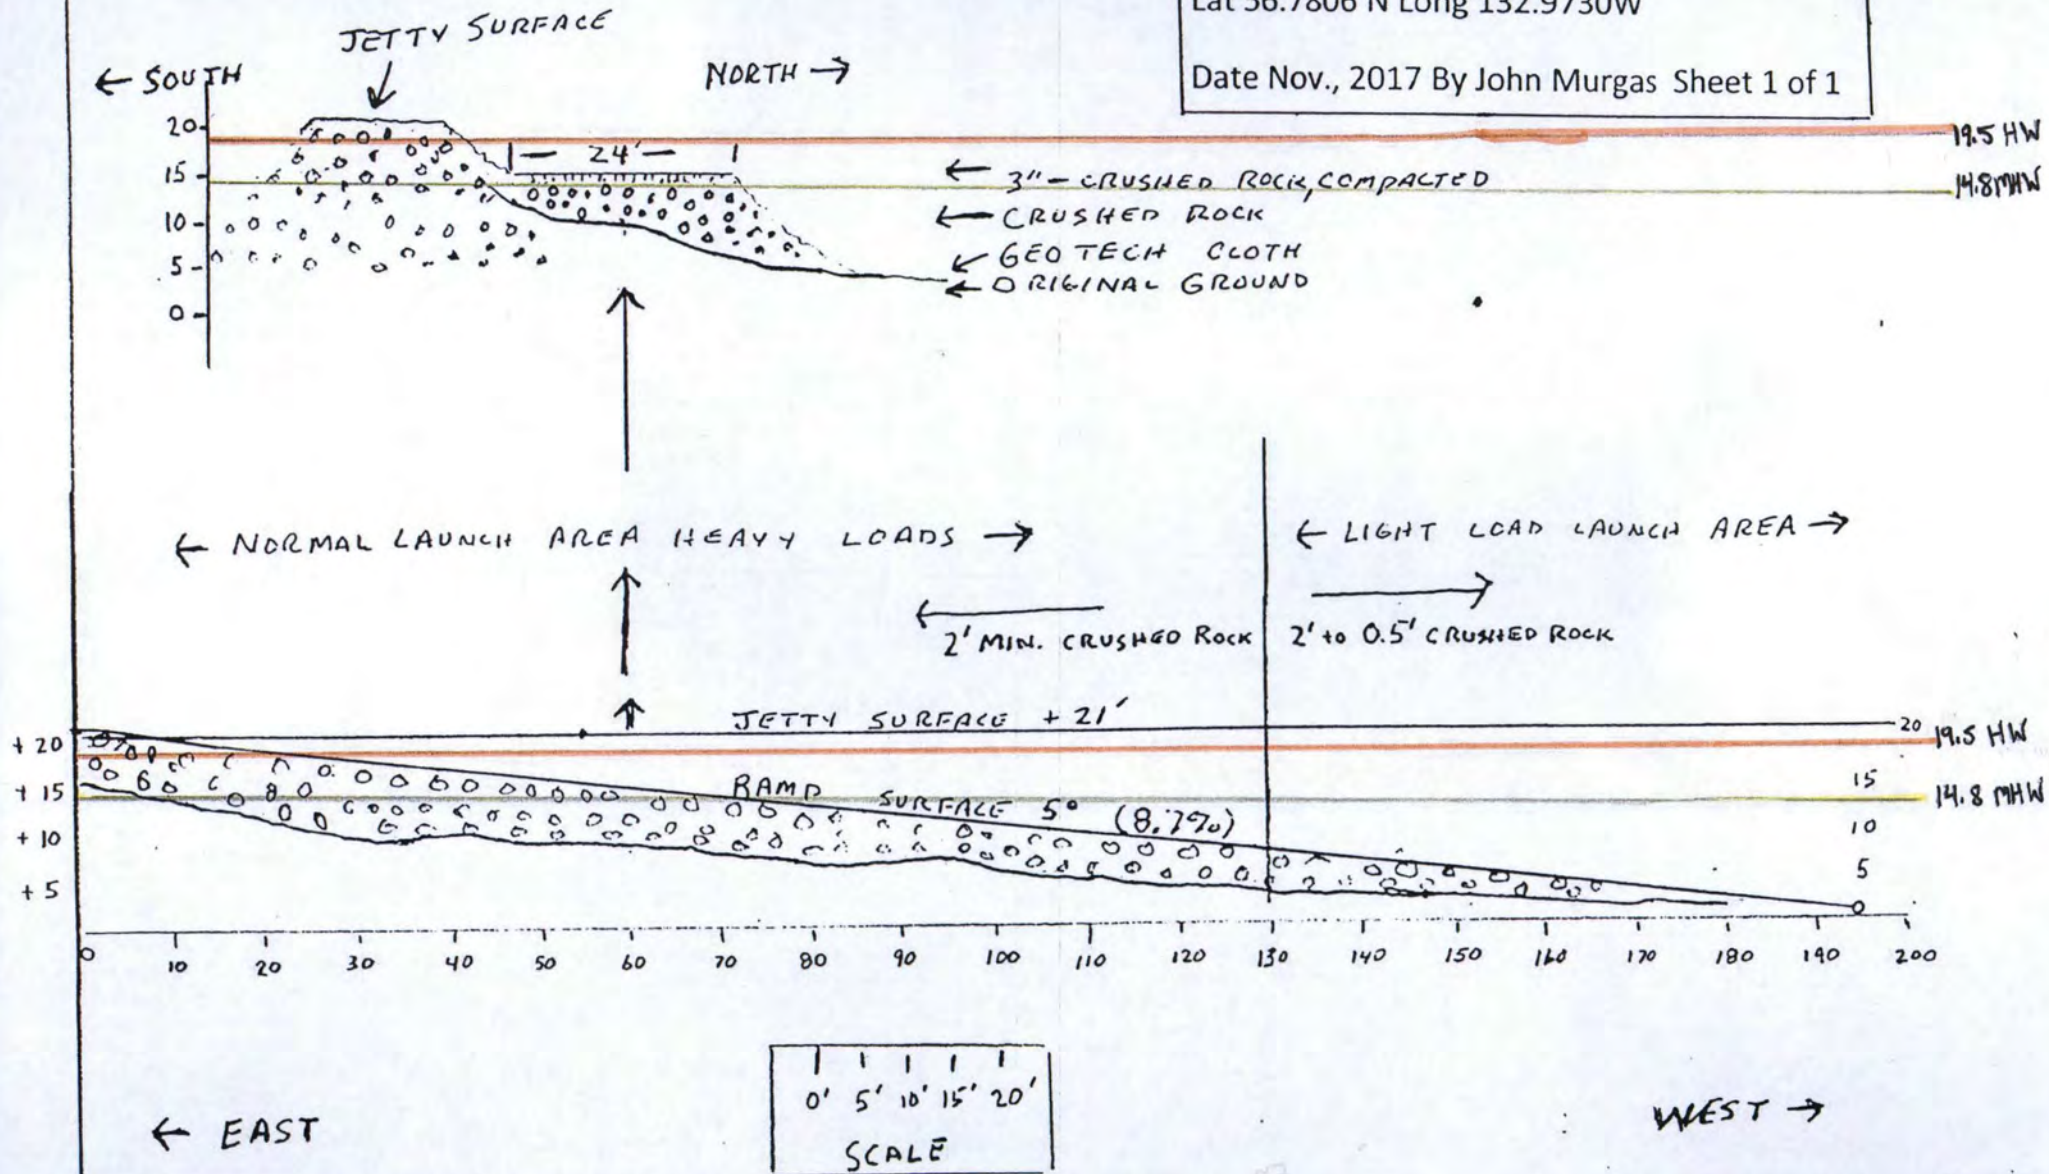 Lat 56.7806 N Long 132.9730W
Date Nov., 2017 By John Murgas Sheet 1 of 1
JETTY SURFACE
← SOUTH
NORTH →
20
15
10
5
0
24'
19.5 HW
14.8 MHW
← 3"- CRUSHED ROCK, COMPACTED
← CRUSHED ROCK
← GEO TECH CLOTH
← ORIGINAL GROUND
← NORMAL LAUNCH AREA HEAVY LOADS →
← LIGHT LOAD LAUNCH AREA →
2' MIN. CRUSHED ROCK
2' to 0.5' CRUSHED ROCK
JETTY SURFACE + 21'
+ 20
+ 15
+ 10
+ 5
20
15
10
5
0
19.5 HW
14.8 MHW
RAMP SURFACE 5° (8.7%)
0 10 20 30 40 50 60 70 80 90 100 110 120 130 140 150 160 170 180 190 200
0' 5' 10' 15' 20'
SCALE
← EAST
WEST →